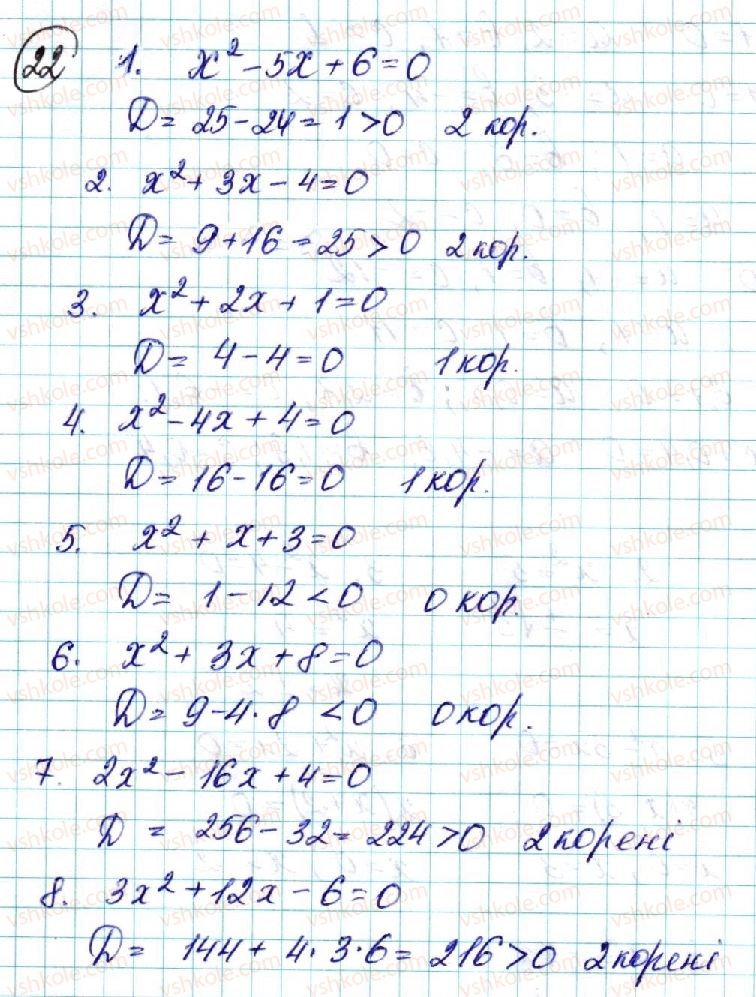 22 1. x² - 5x + 6 = 0
D = 25 - 24 = 1 > 0 2 кор.
2. x² + 3x - 4 = 0
D = 9 + 16 = 25 > 0 2 кор.
3. x² + 2x + 1 = 0
D = 4 - 4 = 0 1 кор.
4. x² - 4x + 4 = 0
D = 16 - 16 = 0 1 кор.
5. x² + x + 3 = 0
D = 1 - 12 < 0 0 кор.
6. x² + 3x + 8 = 0
D = 9 - 4 · 8 < 0 0 кор.
7. 2x² - 16x + 4 = 0
D = 256 - 32 = 224 > 0 2 корені
8. 3x² + 12x - 6 = 0
D = 144 + 4 · 3 · 6 = 216 > 0 2 корені
vshkole.com